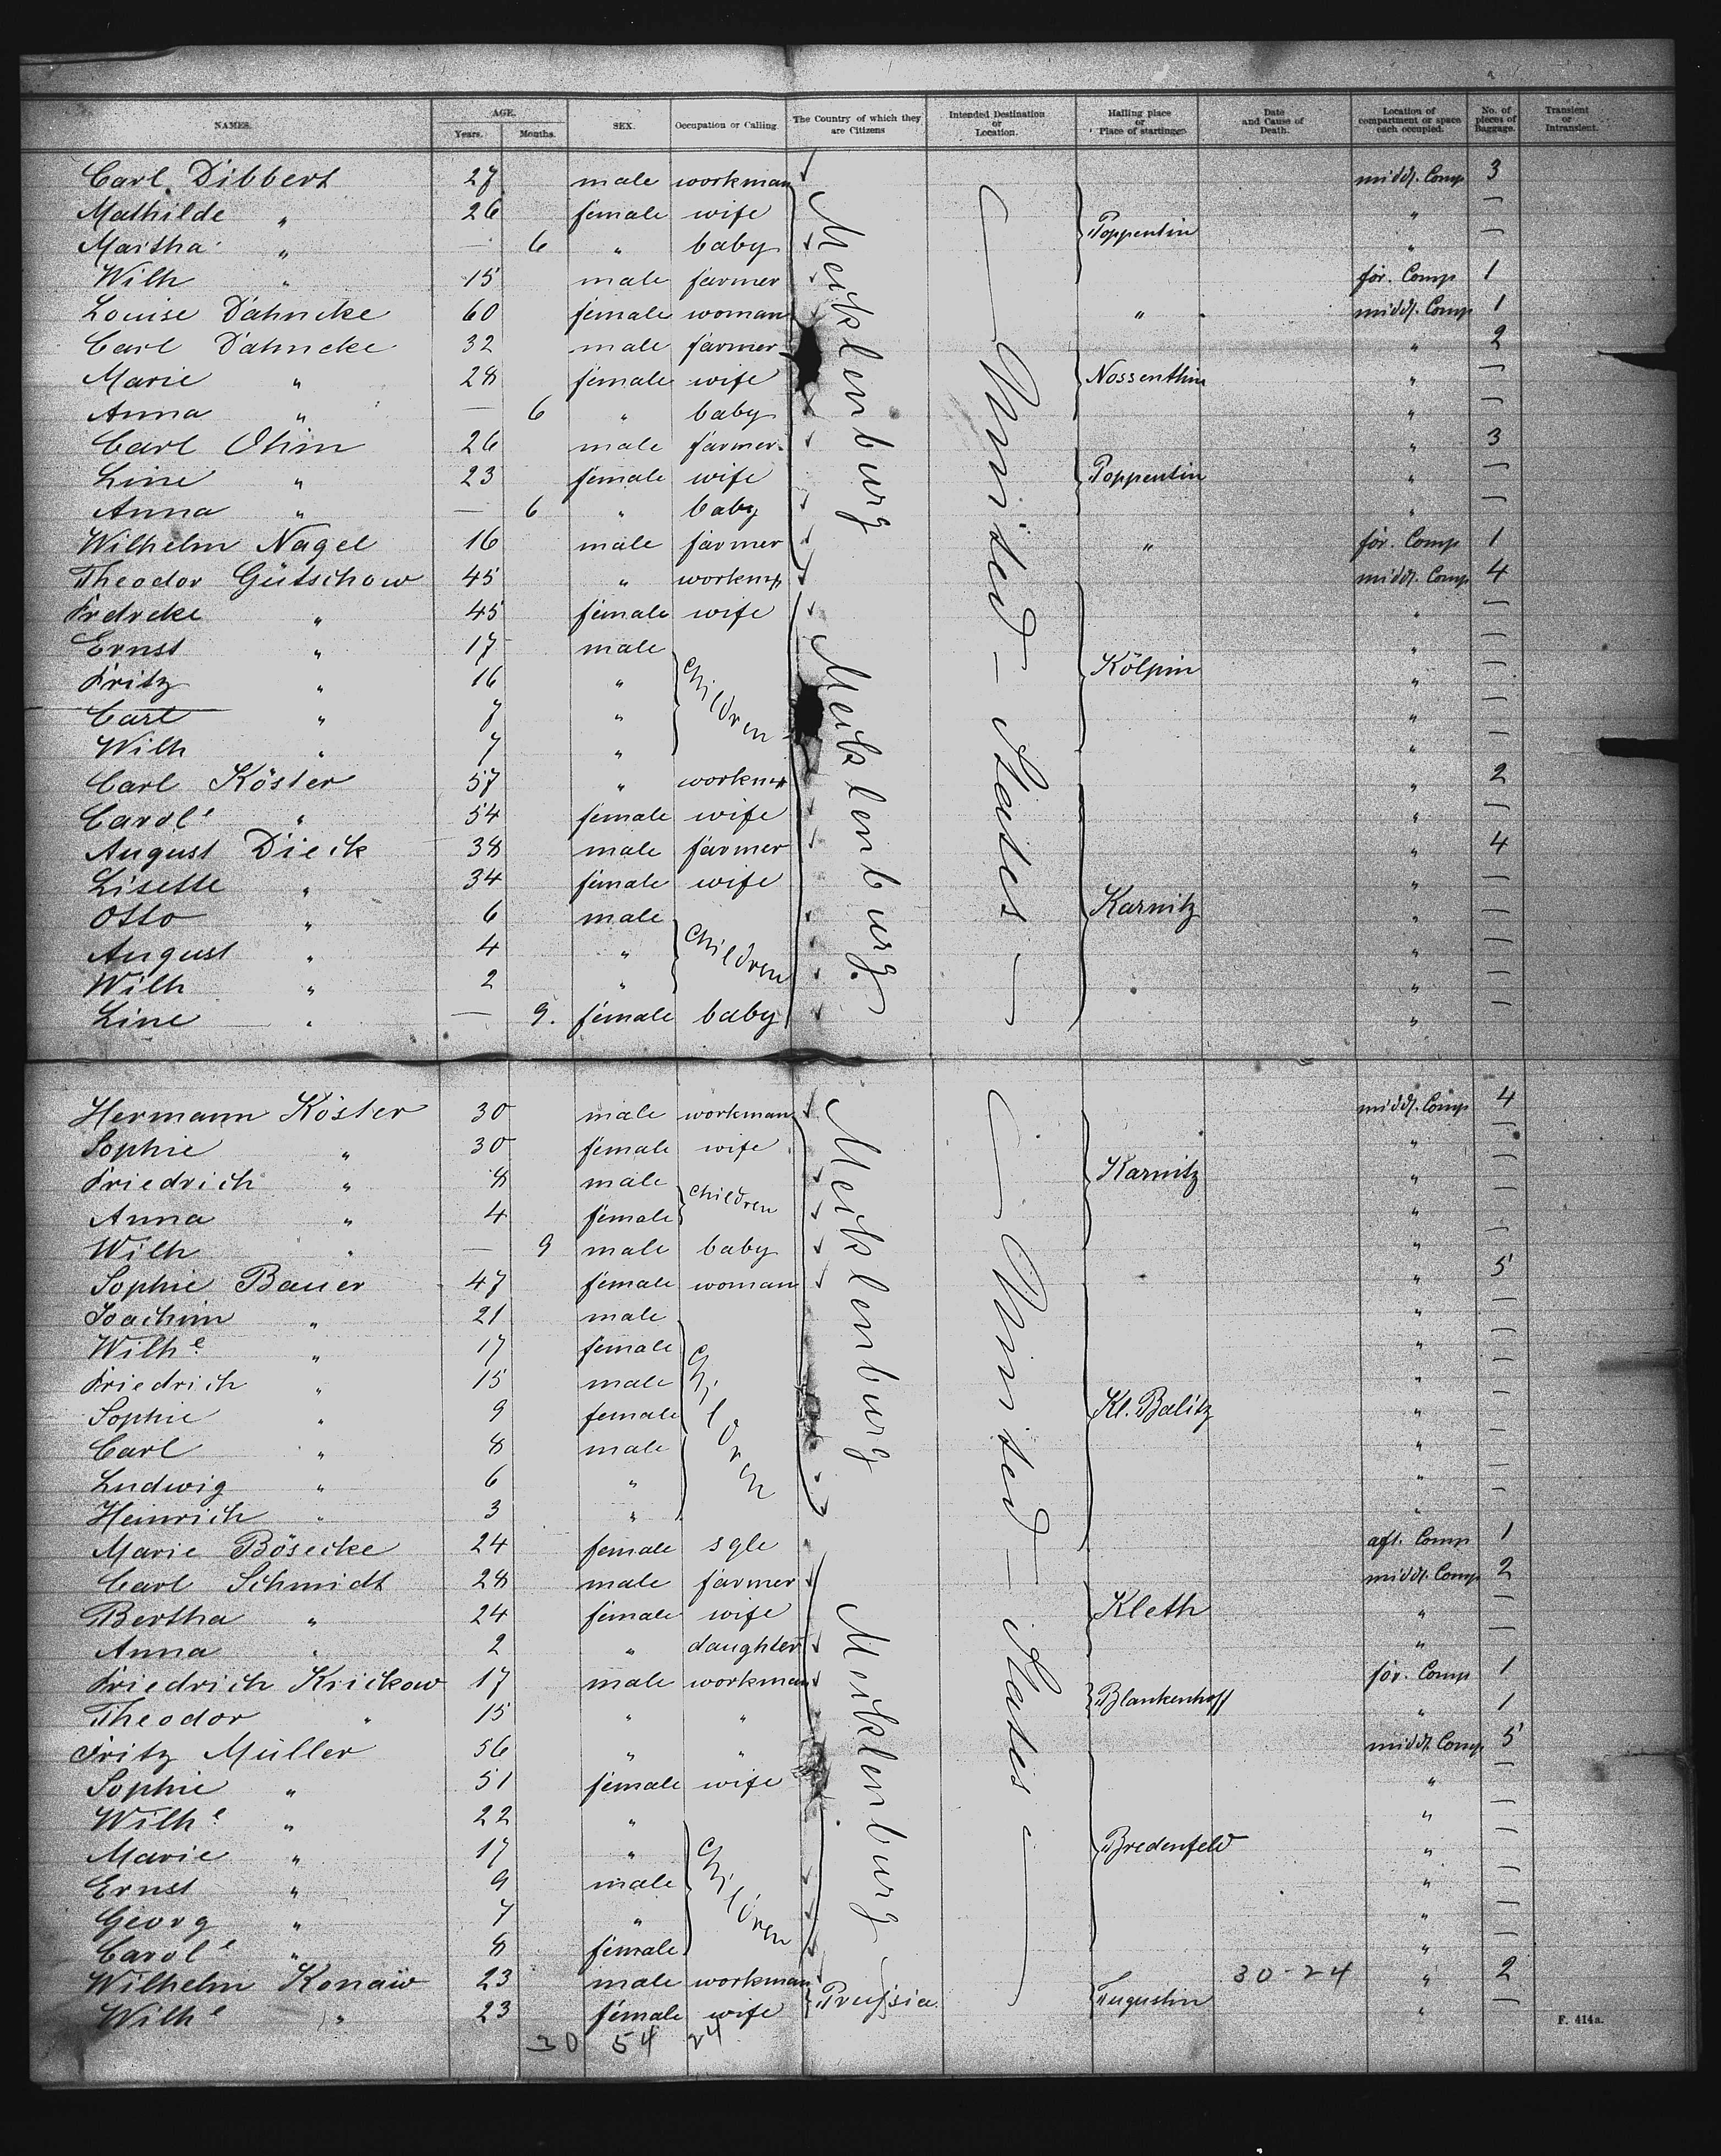 NAMES. AGE. Years. Months. SEX. Occupation or Calling. The Country of which they are Citizens Intended Destination or Location. Hailing place or Place of starting Date and Cause of Death. Location of compartment or space each occupied. No. of pieces of Baggage. Transient or Intransient.
Carl Dibbert 27 male workman middl. Comp 3
Mathilde " 26 female wife " —
Martha " — 6 " baby Poppentin " —
Wilh " 15 male farmer for. Comp 1
Louise Dähncke 60 female woman " middl. Comp 1
Carl Dähncke 32 male farmer " 2
Marie " 28 female wife Nossenthin " —
Anna " — 6 " baby " —
Carl Ohm 26 male farmer " 3
Line " 23 female wife Poppentin " —
Anna " — 6 " baby " —
Wilhelm Nagel 16 male farmer " for. Comp 1
Theodor Gütschow 45 " workm middl. Comp 4
Fredrcke " 45 female wife " —
Ernst " 17 male " —
Fritz " 16 " Children Kölpin " —
Carl " 7 " " —
Wilh " 7 " " —
Carl Köster 57 " workm " 2
Carole " 54 female wife " —
August Dieck 38 male farmer " 4
Lisette " 34 female wife " —
Otto " 6 male Karnitz " —
August " 4 " Children " —
Wilh " 2 " " —
Line " — 9. female baby " —
Mecklenburg
Mecklenburg
United - States
Hermann Köster 30 male workman middl. Comp 4
Sophie " 30 female wife " —
Friedrich " 8 male Children Karnitz " —
Anna " 4 female " —
Wilh " — 9 male baby " —
Sophie Bauer 47 female woman " 5
Joachim " 21 male " —
Wilhe " 17 female " —
Friedrich " 15 male Children " —
Sophie " 9 female Kl. Balitz " —
Carl " 8 male " —
Ludwig " 6 " " —
Heinrich " 3 " " —
Marie Bösecke 24 female sgle aft. Comp 1
Carl Schmidt 28 male farmer middl. Comp 2
Bertha " 24 female wife Kleth " —
Anna " 2 " daughter " —
Friedrich Krickow 17 male workman for. Comp 1
Theodor " 15 " " Blankenhoff " 1
Fritz Müller 56 " " middl. Comp 5
Sophie " 51 female wife " —
Wilhe " 22 " " —
Marie " 17 " Children Bredenfeld " —
Ernst " 9 male " —
Georg " 7 " " —
Carole " 8 female " —
Wilhelm Konaw 23 male workman 30-24 " 2
Wilhe " 23 female wife Preussia " —
Mecklenburg
Mecklenburg
United - States
30 54 24
F. 414a.